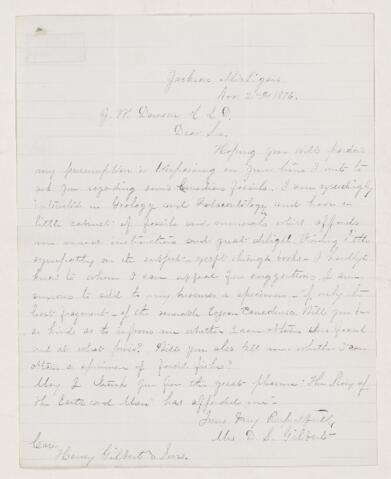 Jackson, Michigan.
Nov. 2 1876.
J. W. Dawson L L D.
Dear Sir,
Hoping you will pardon
my presumption in trespassing on your time I write to
ask you regarding some Canadian fossils. I am exceedingly
interested in Geology and Palaeontology and have a
little cabinet of fossils and minerals which affords
me much instruction and great delight. Finding little
sympathy on the subject - except through books - I hardly
know to whom I can appeal for suggestions. I am
anxious to add to my treasures a specimen - if only the
least fragment - of the Eozoon Canadense. Will you be
so kind as to inform me whether I can obtain this fossil
and at what price? Will you also tell me whether I can
obtain a specimen of fossil fishes?
May I thank you for the great pleasure "The Story of
the Earth and Man" has afforded me.
Yours Very Respectfully,
Mrs D. S. Gilbert
Care
Henry Gilbert & Sons.